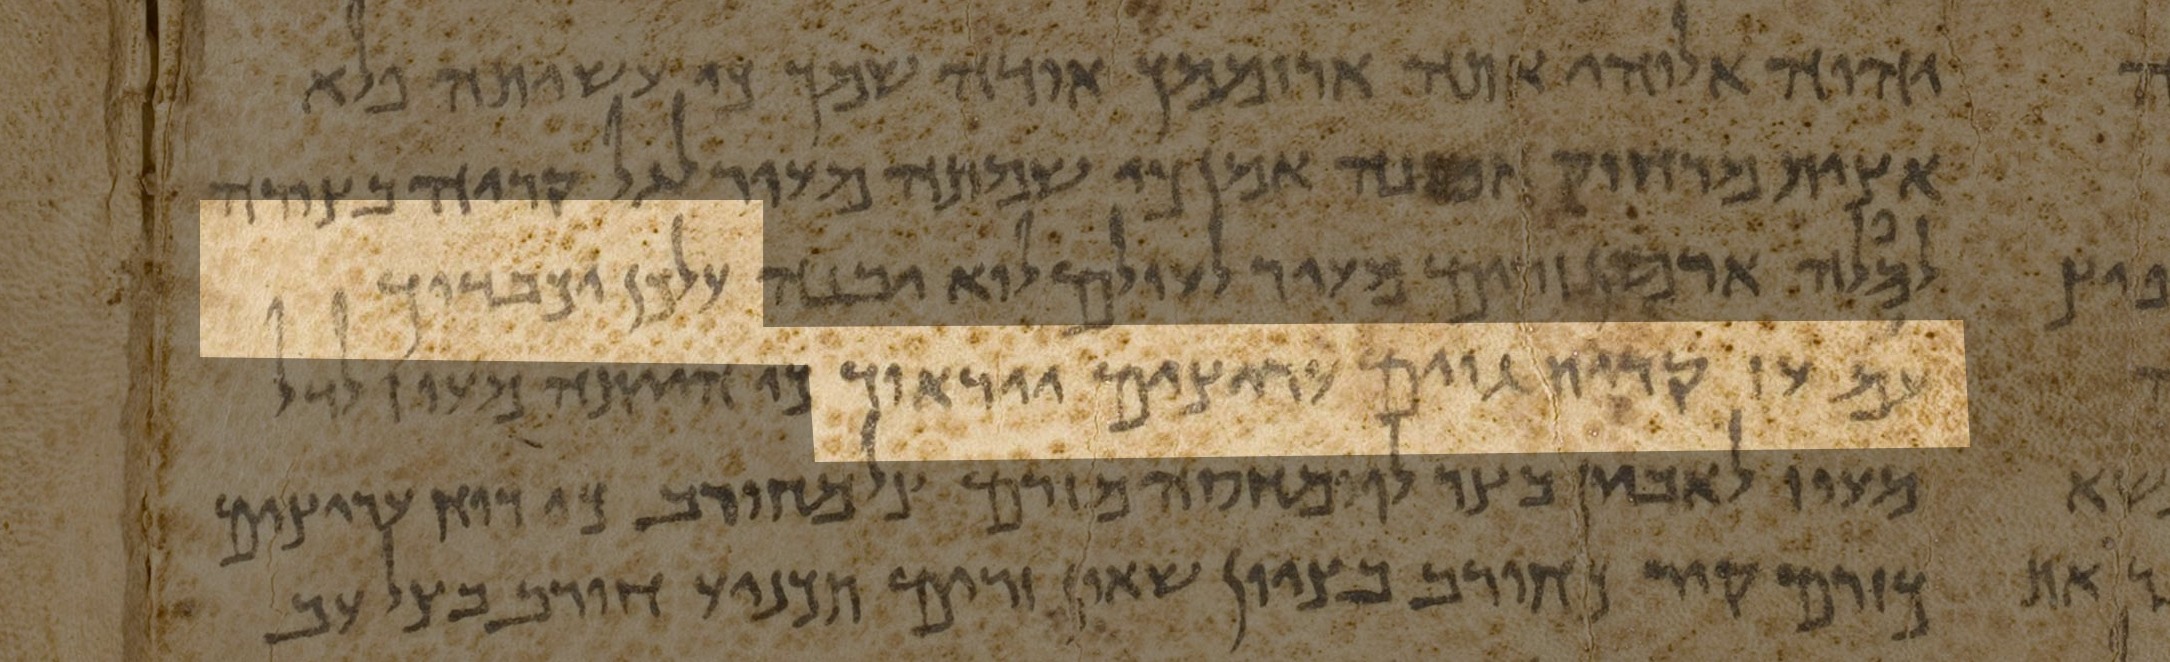 יהוה אלוהי אתה ארוממך אודה שמך כי עשיתה פלא
אצות מרחוק אמונה אמן כי שמתה מעיר לגל קריה בצורה
למפלה ארמון זרים מעיר לעולם לוא יבנה על כן יכבדוך
עם עז קרית גוים עריצים ייראוך כי הייתה מעוז לדל
מעוז לאביון בצר לו מחסה מזרם צל מחורב כי רוח עריצים
כזרם קיר כחורב בציון שאון זרים תכניע חורב בצל עב